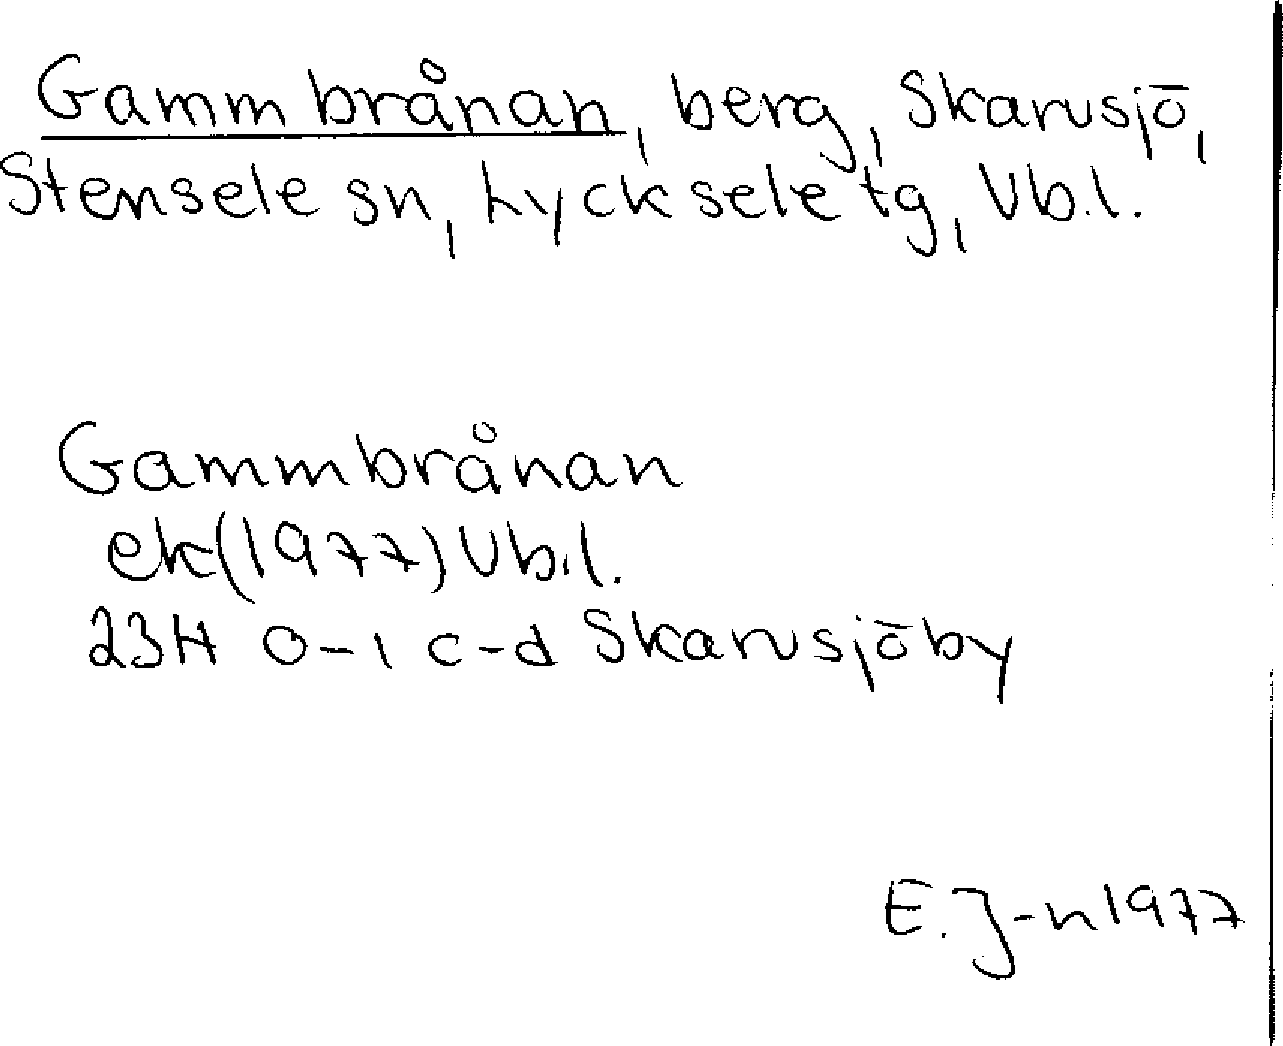 Gammbrånan, berg, Skarvsjö,
Stensele sn, Lycksele tg, Vb.l.
Gammbrånan
ek(1977) Vb.l.
23H 0-1 c-d Skarvsjöby
E.J-n 1977